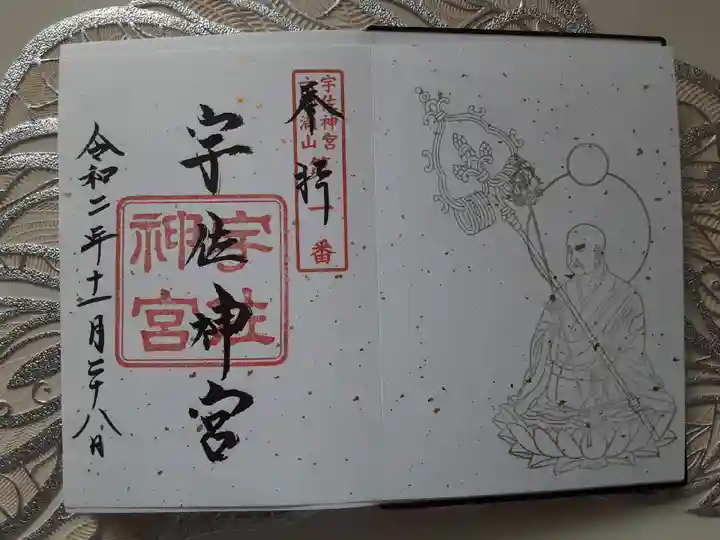 奉拝
宇佐神宮
六郷満山
一番
宇佐神宮
宇佐
神宮
令和二年十一月二十八日